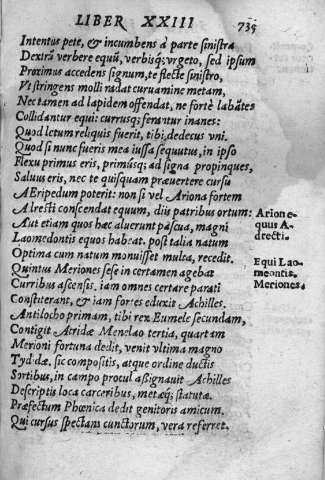 LIBER XXIII
735
Intentus pete, & incumbens à parte sinistra
Dextrũ verbere equũ, verbisq; vrgeto, sed ipsum
Proximus accedens signum, te flecte sinistro,
Vt stringens molli radat curuamine metam,
Nec tamen ad lapidem offendat, ne fortè labãtes
Collidantur equi: currusq; ferãtur inanes:
Quod letum reliquis fuerit, tibi, dedecus vni.
Quod si nunc fueris mea iussa sequutus, in ipso
Flexu primus eris, primúsq; ad signa propinques,
Saluus eris, nec te quisquam præuertere cursu
AEripedum poterit: non si vel Ariona fortem
Alresti conscendat equum, diis patribus ortum:
Aut etiam quos hæc aluerunt pascua, magni
Laomedontis equos habeat. post talia natum
Optima cum natum monuisset multa, recedit.
Quintus Meriones sese in certamen agebat
Curribus ascensis. iam omnes certare parati
Constiterant, & iam sortes eduxit Achilles.
Antilocho primam, tibi rex Eumele secundam,
Contigit Atridæ Menelao tertia, quartam
Merioni fortuna dedit, venit vltima magno
Tyddæ. sic compositis, atque ordine ductis
Sortibus, in campo procul aßignauit Achilles
Descriptis loca carceribus, metæq; statutæ.
Præfectum Phœnica dedit genitoris amicum.
Qui cursus spectans cunctorum, vera referret.
Arion e-
quus A-
drecti.
Equi Lao-
meontis.
Meriones